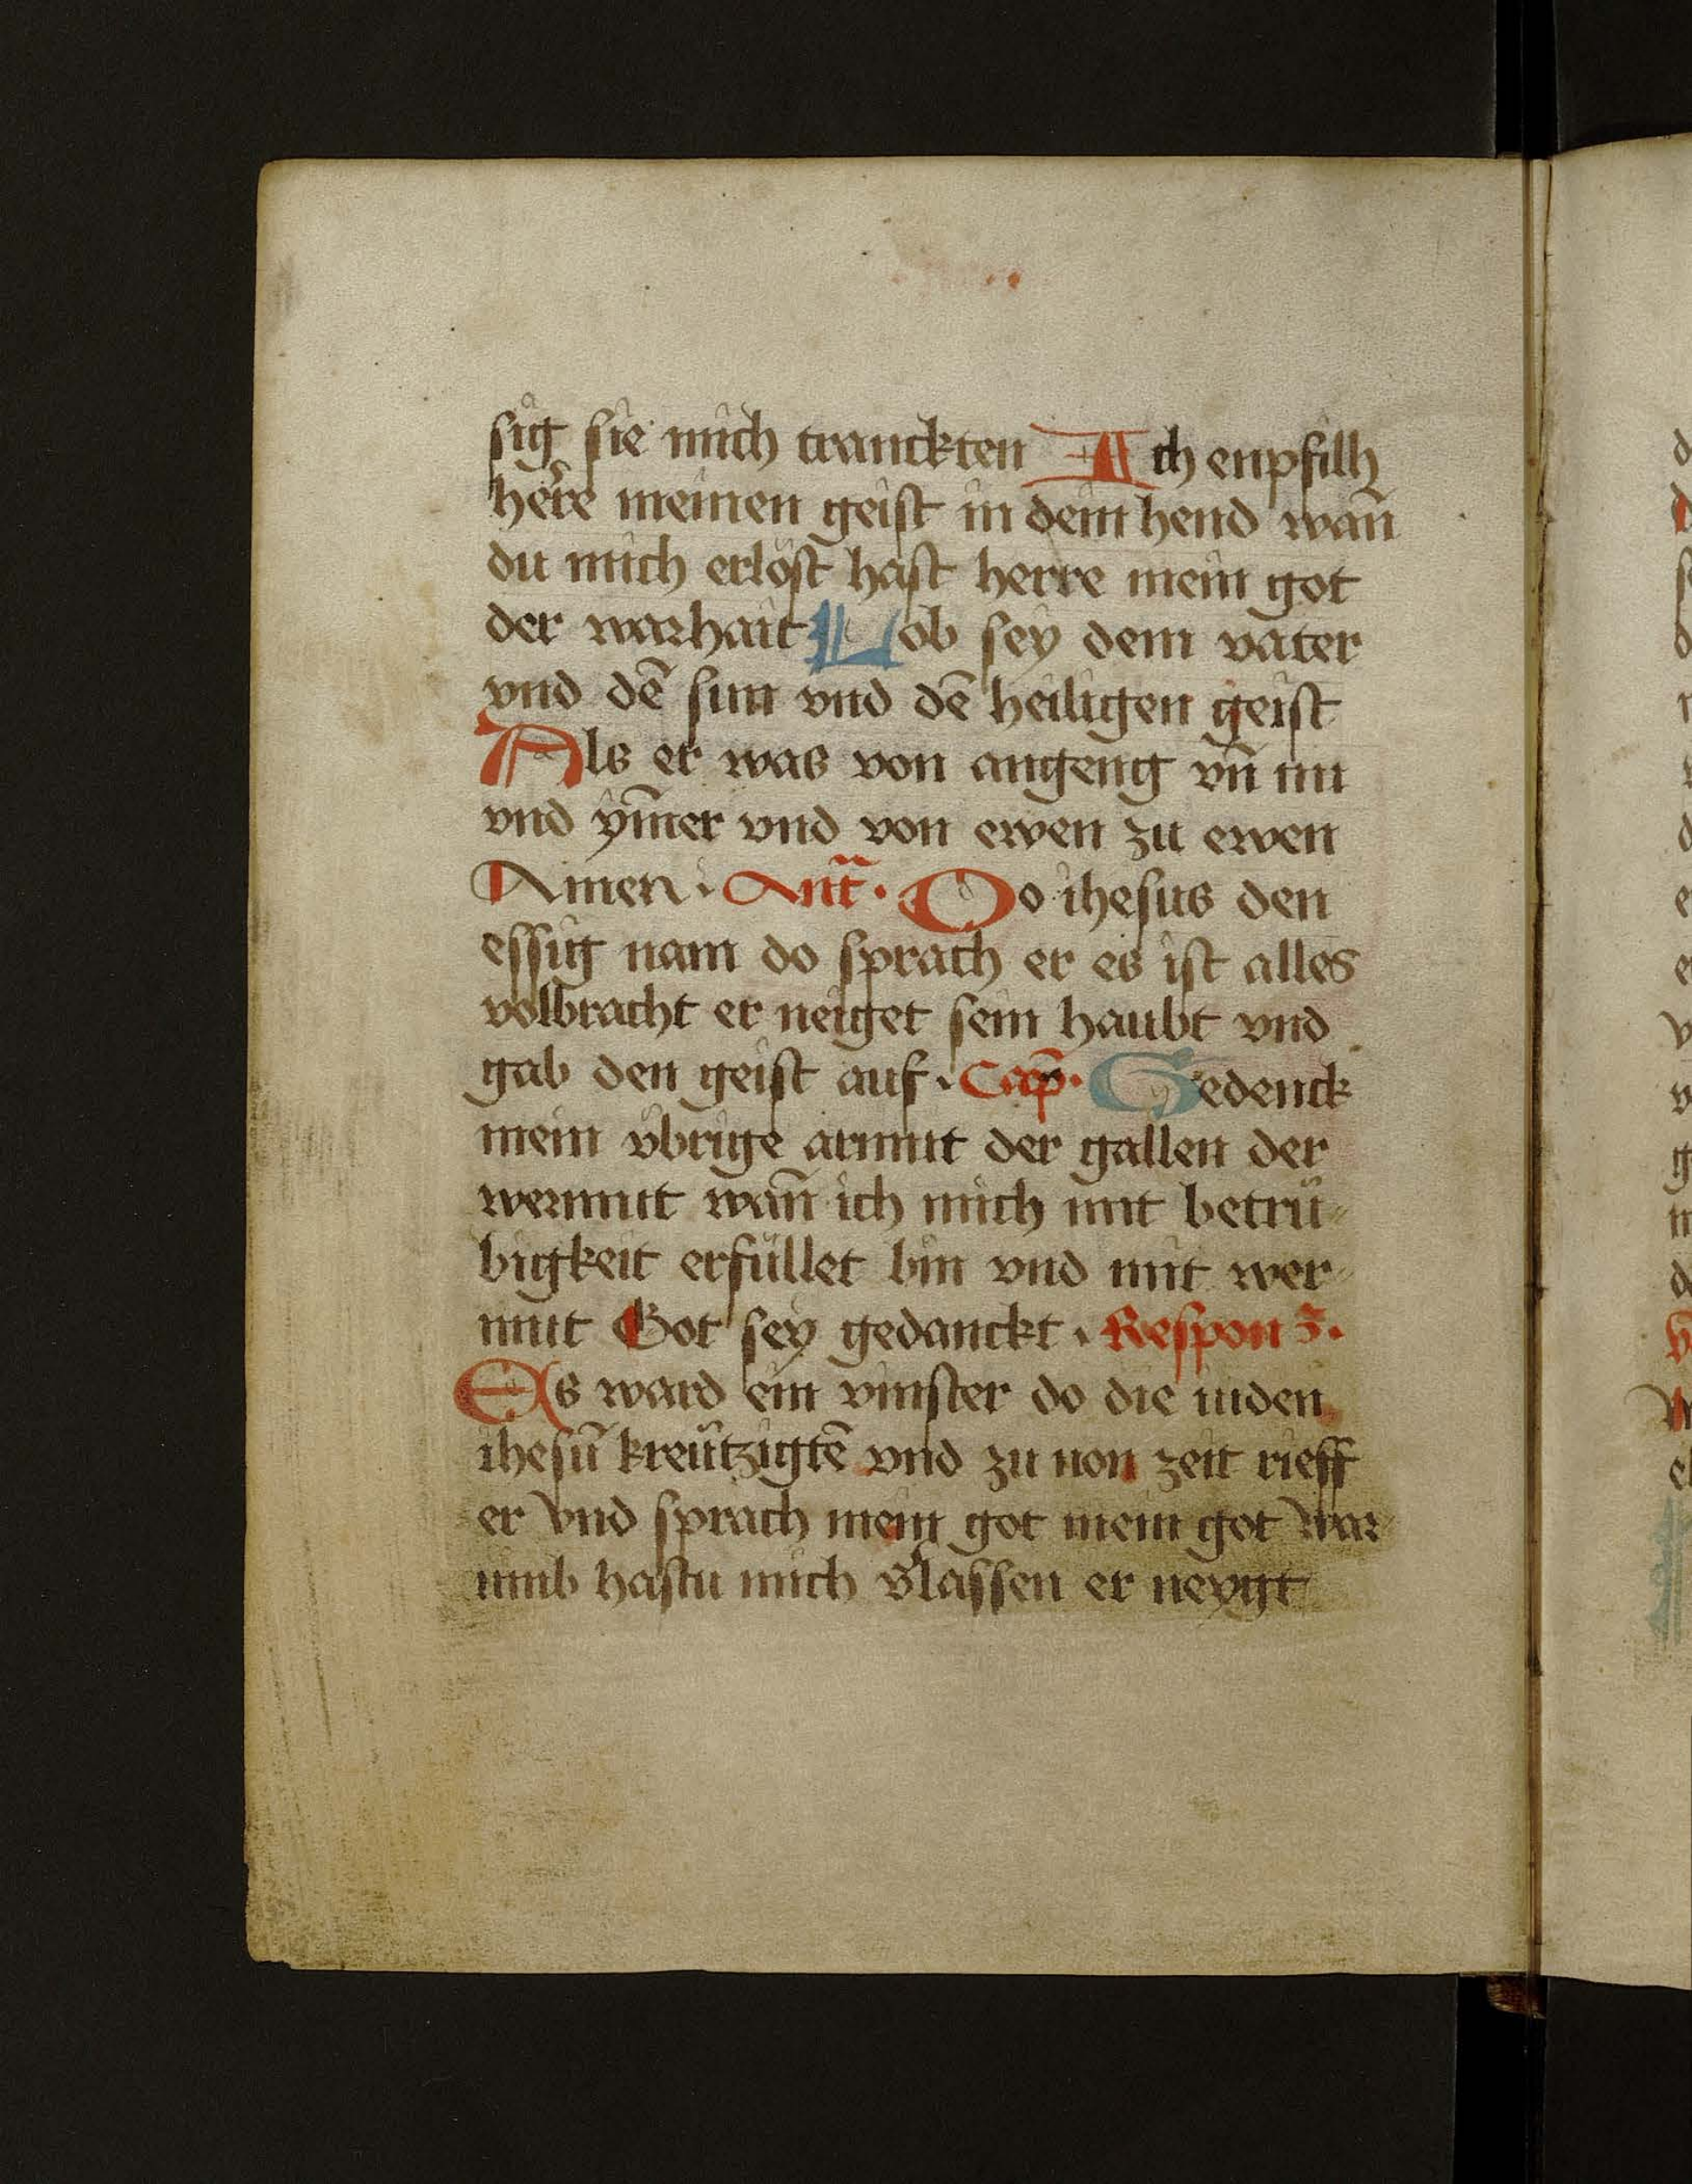 sig sie mich tranckten Ich enpfilh
here meinen geist in dein hend wañ
du mich erlöst hast herre mein got
der warhait Lob sey dem vater
vnd dē sun vnd dē heiligen geist
Als er was von angeng vñ nu
vnd ym̄er vnd von ewen zu ewen
Amen · Ant̄ · Do ihesus den
essig nam do sprach er es ist alles
volbracht er neiget sein haubt vnd
gab den geist auf · Cap̄ · Gedenck
mein vbrige armut der gallen der
wermut wañ ich mich mit betrü
bigkeit erfüllet bin vnd mit wer
mut Got sey gedanckt · Respon ʒ.
Es ward ein vinster do die iuden
ihesū kreützigtē vnd zu non zeit rieff
er vnd sprach mein got mein got war
umb hastu mich v̓lassen er neygt